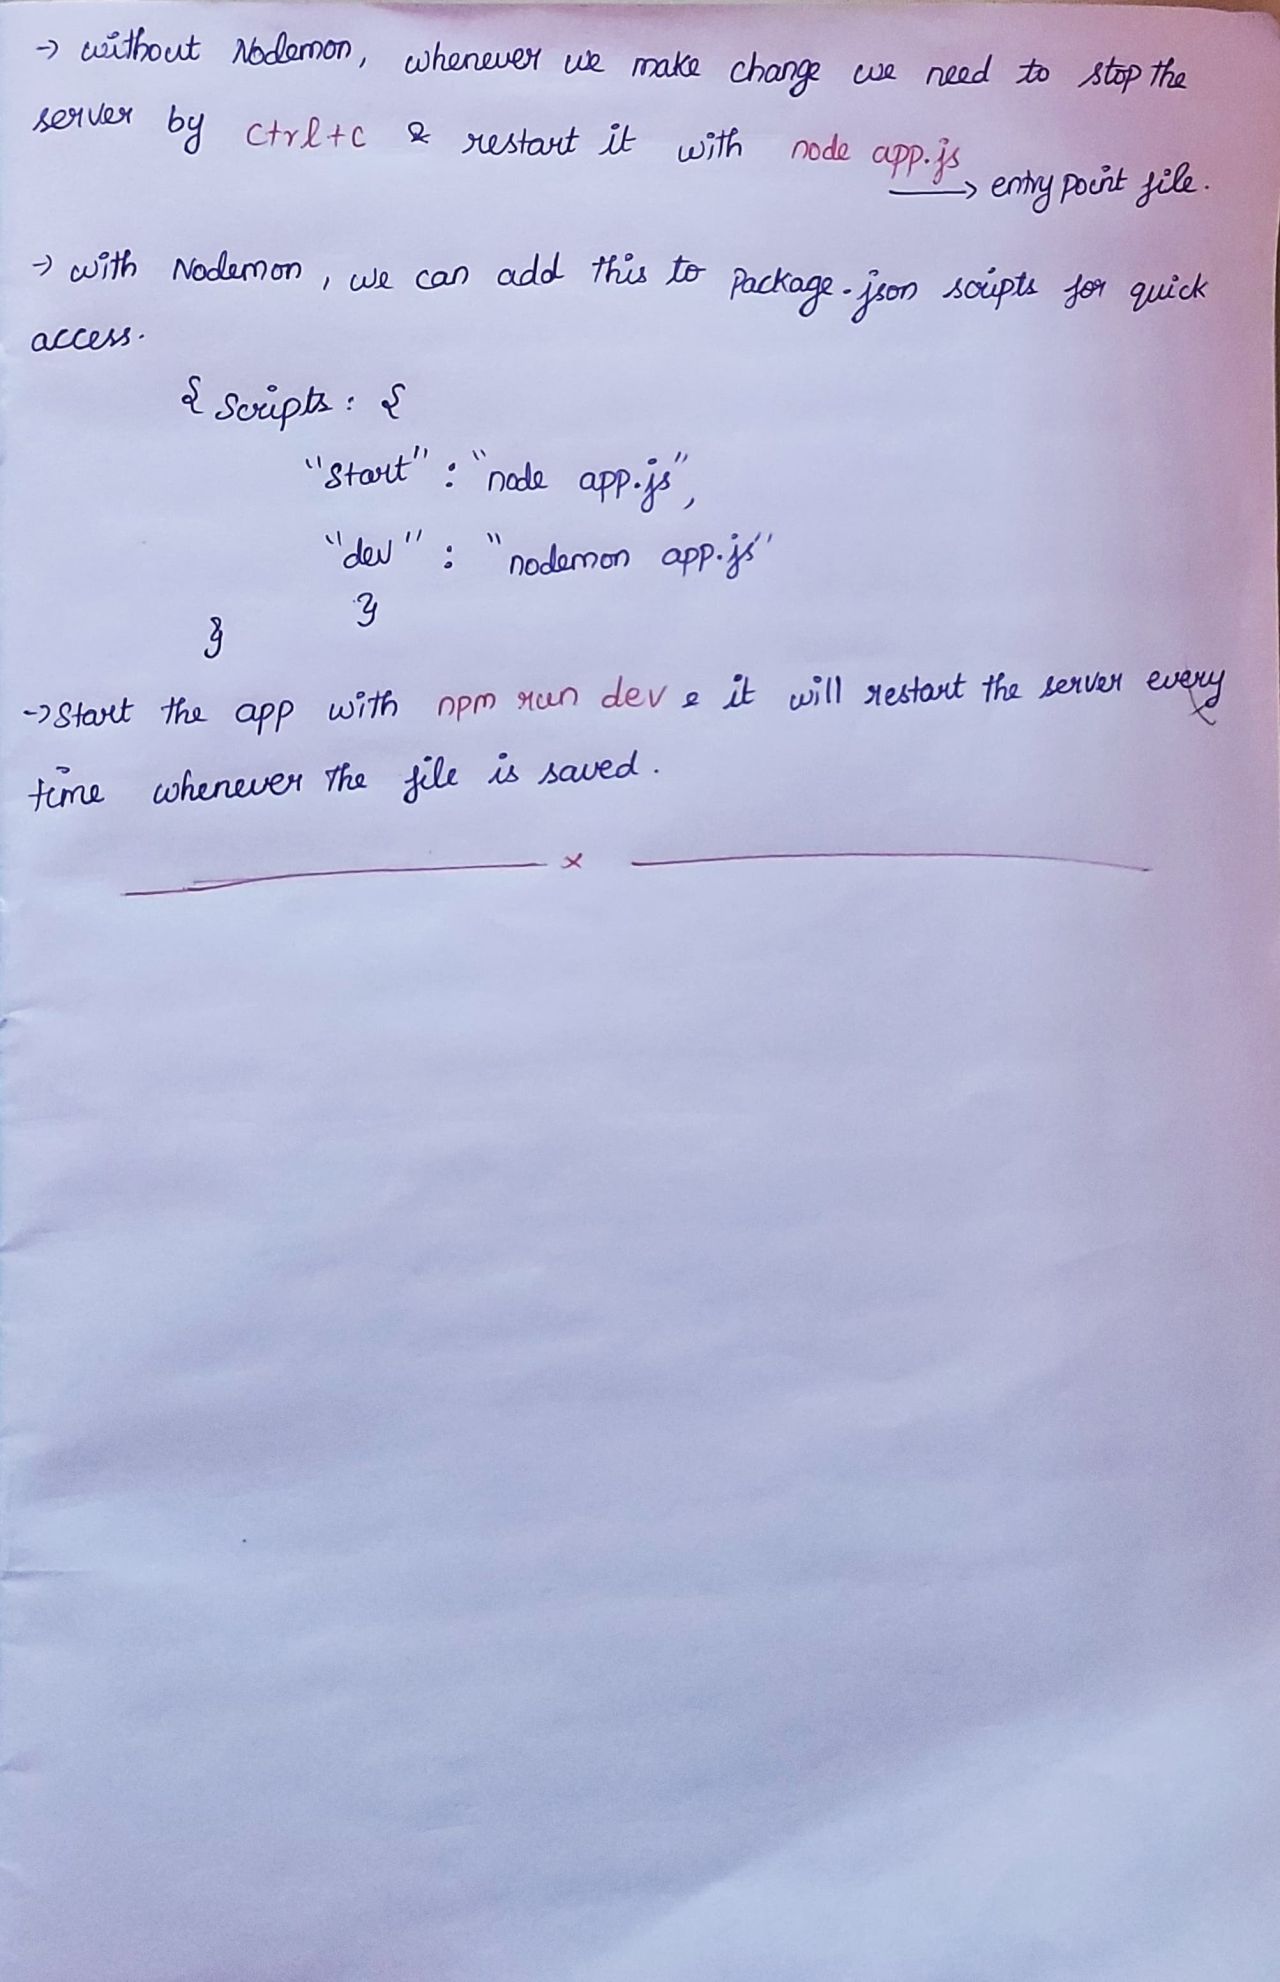 → without Nodemon, whenever we make change we need to stop the
server by Ctrl+c & restart it with node app.js
→ entry point file.
→ with Nodemon, we can add this to Package.json scripts for quick
access.
{ Scripts: {
"Start" : "node app.js",
"dev" : "nodemon app.js"
}
}
→ Start the app with npm run dev & it will restart the server every
time whenever the file is saved.
x